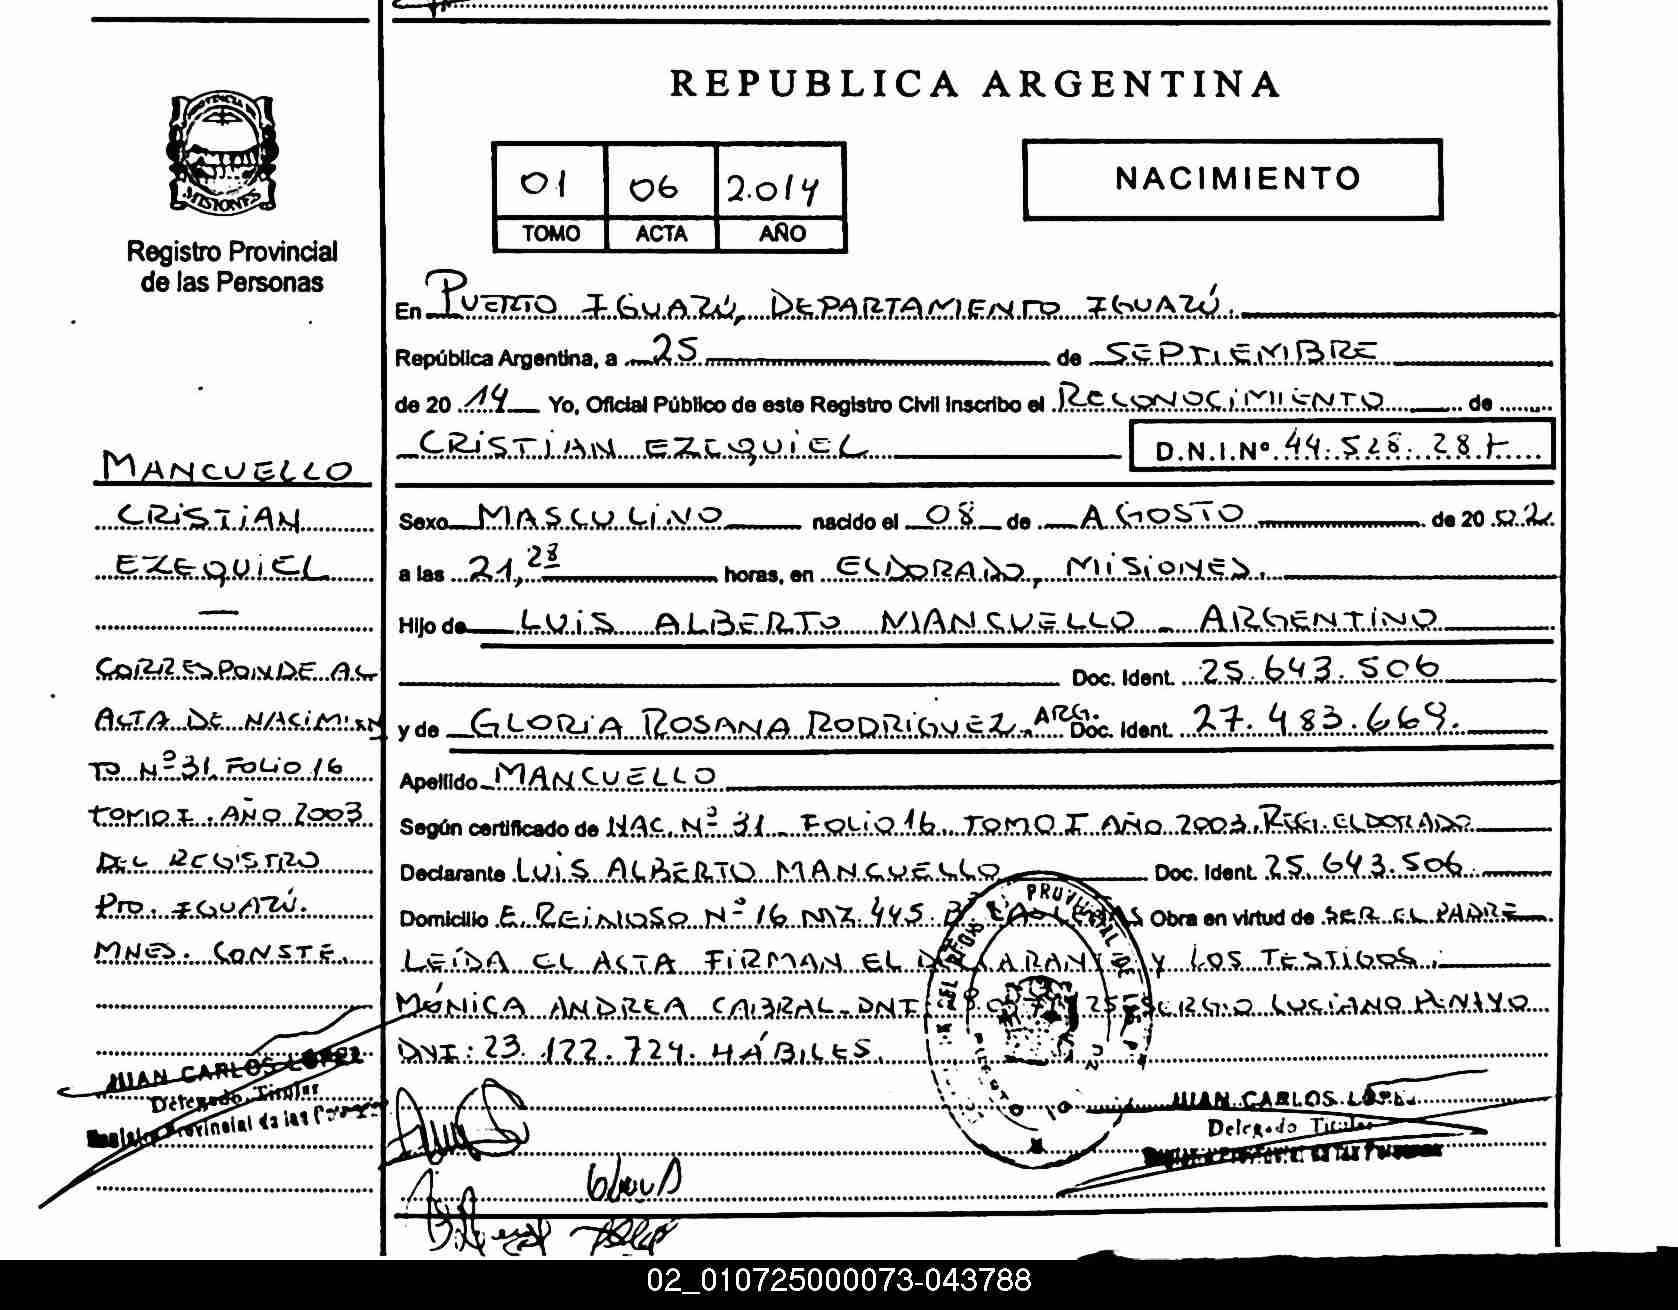 REPUBLICA ARGENTINA
PROVINCIA DE
MISIONES
Registro Provincial
de las Personas
01 06 2.014
TOMO ACTA AÑO
NACIMIENTO
MANCUELLO
CRISTIAN
EZEQUIEL
—
CORRESPONDE AL
ACTA DE NACIMIEN
TO Nº 31 FOLIO 16
TOMO I. AÑO 2003
DEL REGISTRO
PTO. IGUAZÚ.
MNES. CONSTE.
JUAN CARLOS LOPEZ
Delegado Titular
Registro Provincial de las Personas
En PUERTO IGUAZÚ, DEPARTAMIENTO IGUAZÚ.
República Argentina, a 25 de SEPTIEMBRE
de 20 14 Yo, Oficial Público de este Registro Civil inscribo el RECONOCIMIENTO de
CRISTIAN EZEQUIEL D.N.I.Nº 44.528.28
Sexo MASCULINO nacido el 08 de AGOSTO de 20 02
a las 21,28 horas, en ELDORADO, MISIONES.
Hijo de LUIS ALBERTO MANCUELLO - ARGENTINO
Doc. Ident. 25.643.506
y de GLORIA ROSANA RODRIGUEZ. ARG. Doc. Ident. 27.483.669.
Apellido MANCUELLO
Según certificado de NAC. Nº 31 FOLIO 16, TOMO I AÑO 2003, REG. ELDORADO
Declarante LUIS ALBERTO MANCUELLO Doc. Ident. 25.643.506
Domicilio E. REINOSO Nº 16 MZ. 445. Obra en virtud de SER EL PADRE
LEÍDA EL ACTA FIRMAN EL DECLARANTE Y LOS TESTIGOS:
MÓNICA ANDREA CABRAL - DNI SERGIO LUCIANO
DNI: 23.122.724. HÁBILES.
JUAN CARLOS LOPEZ
Delegado Titular
Registro Provincial de las Personas
02_010725000073-043788